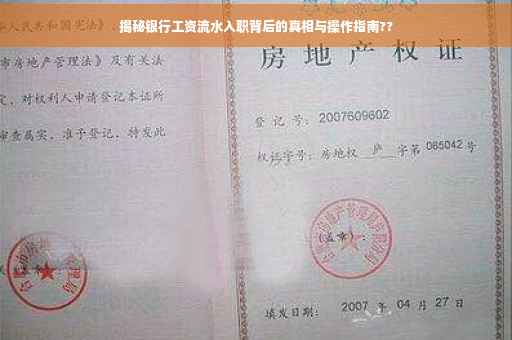 揭秘银行工资流水入职背后的真相与操作指南??
人民共和国宪法》
市房地产管理法》及有关法
定，对权利人申请登记本证所
审查属实，准予登记，特发此
房地产权证
登记号：2007609602
权证字号：房地权 庐 字第 065042 号
(盖章)：
填发日期：2007 年 04 月 27 日